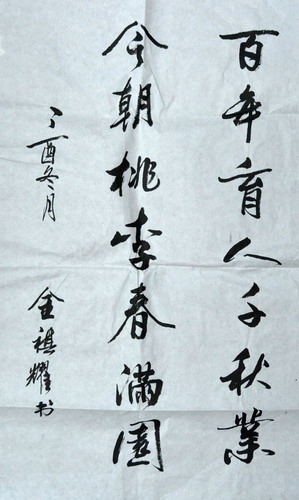 百年育人千秋業
今朝桃李春滿園
丁酉冬月
金祺耀书